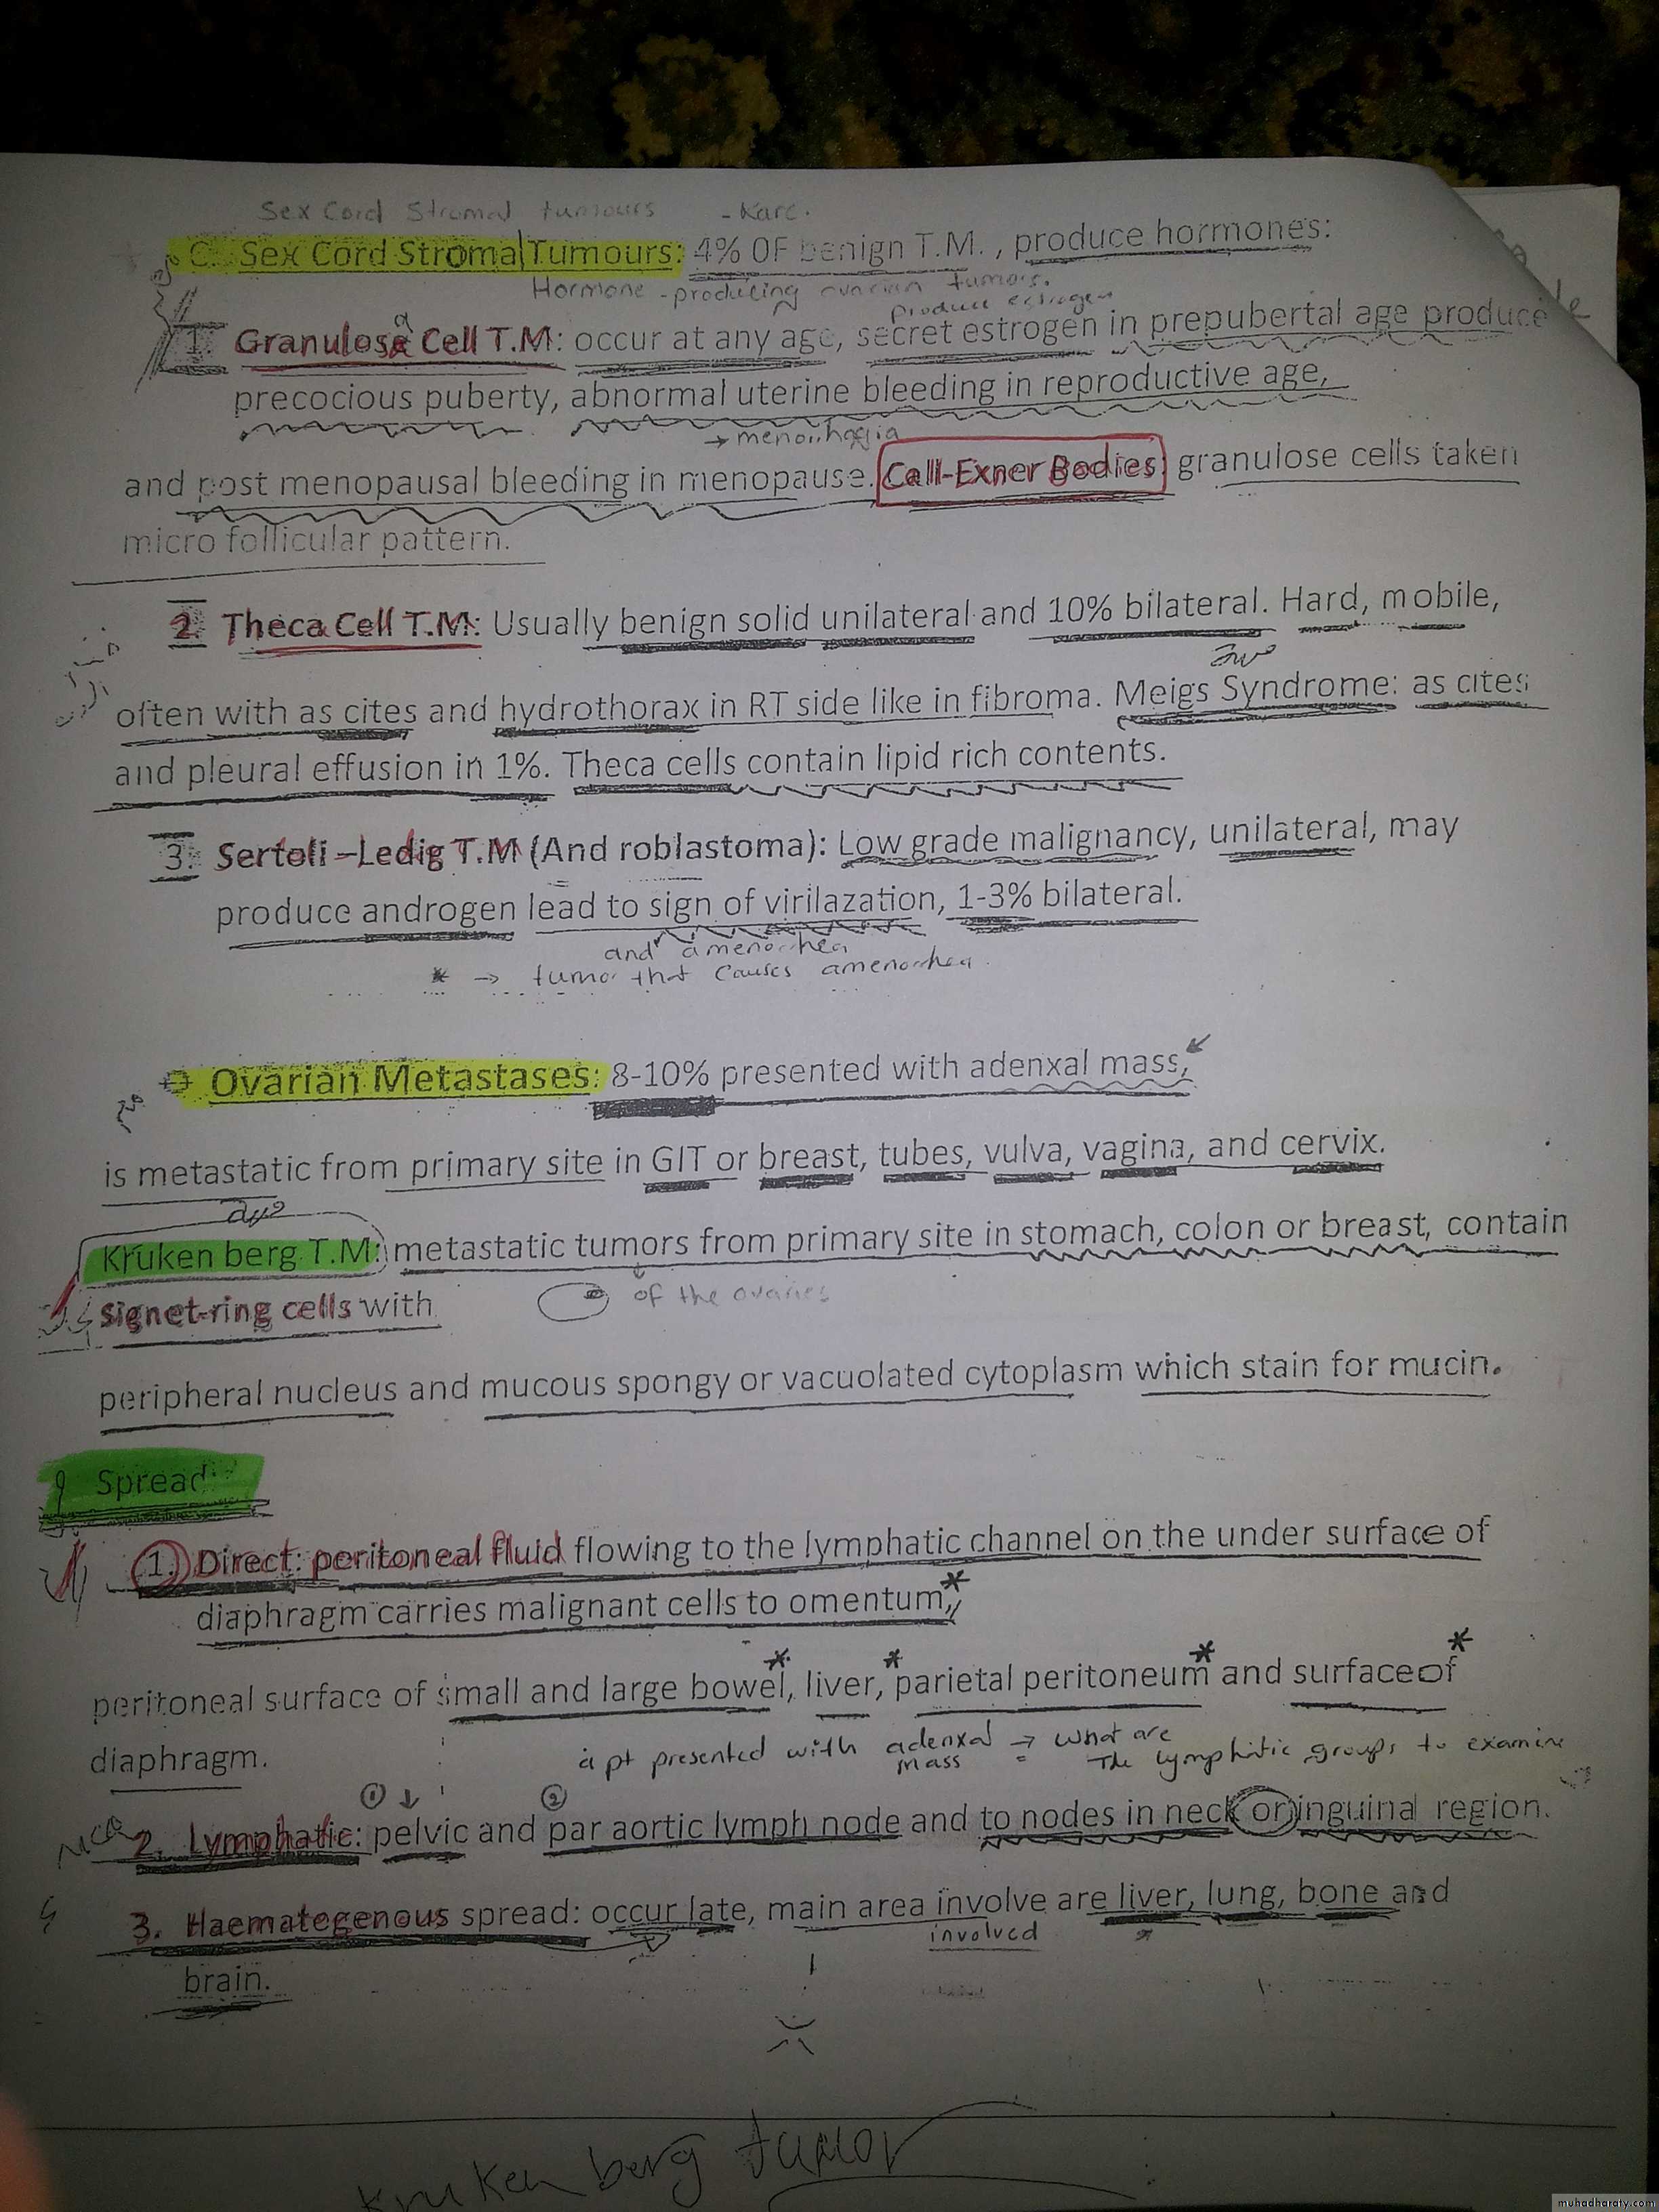 Sex Cord Stromal tumours - Rare.
C. Sex Cord Stromal Tumours: 4% OF benign T.M. , produce hormones:
Hormone - producing ovarian tumors.
produce estrogen
1. Granulosa Cell T.M: occur at any age, secret estrogen in prepubertal age produce
precocious puberty, abnormal uterine bleeding in reproductive age,
→ menorrhagia
and post menopausal bleeding in menopause. Call-Exner Bodies: granulose cells taken
micro follicular pattern.
2. Theca Cell T.M: Usually benign solid unilateral and 10% bilateral. Hard, mobile,
often with as cites and hydrothorax in RT side like in fibroma. Meigs Syndrome: as cites
and pleural effusion in 1%. Theca cells contain lipid rich contents.
3. Sertoli –Ledig T.M (And roblastoma): Low grade malignancy, unilateral, may
produce androgen lead to sign of virilazation, 1-3% bilateral.
and amenorrhea
* → tumor that causes amenorrhea.
Ovarian Metastases: 8-10% presented with adenxal mass,
is metastatic from primary site in GIT or breast, tubes, vulva, vagina, and cervix.
Kruken berg T.M: metastatic tumors from primary site in stomach, colon or breast, contain
of the ovaries
signet-ring cells with
peripheral nucleus and mucous spongy or vacuolated cytoplasm which stain for mucin.
Spread:
1. Direct: peritoneal fluid flowing to the lymphatic channel on the under surface of
diaphragm carries malignant cells to omentum,*
peritoneal surface of small and large bowel,* liver,* parietal peritoneum* and surface of*
diaphragm.
a pt presented with adenxal mass → what are The lymphatic groups to examine
① ↓ ②
MCQ
2. Lymphatic: pelvic and par aortic lymph node and to nodes in neck or inguinal region.
3. Haematogenous spread: occur late, main area involve are liver, lung, bone and
involved
brain.
Kruken berg tumor
muhadharaty.com